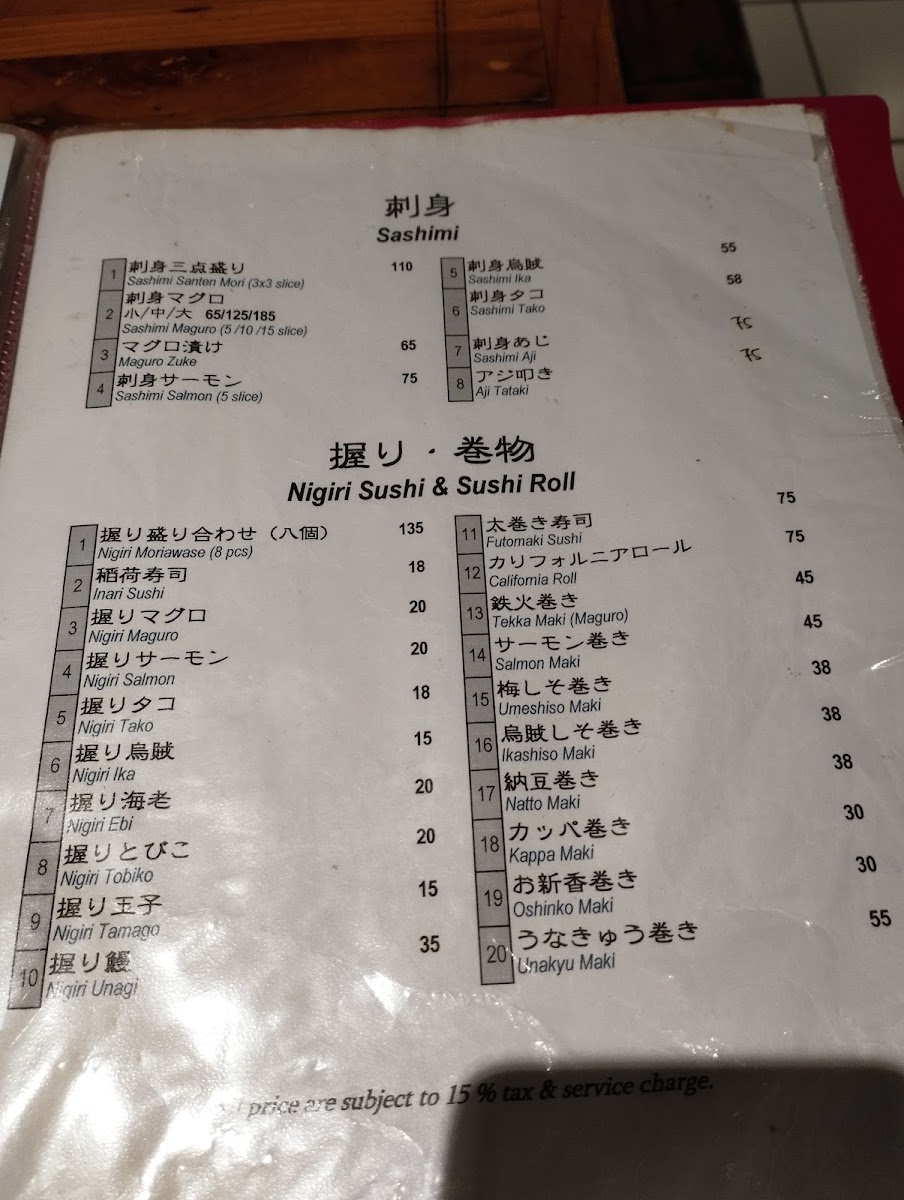 刺身
Sashimi
1 刺身三点盛り 110
Sashimi Santen Mori (3x3 slice)
2 刺身マグロ
小/中/大 65/125/185
Sashimi Maguro (5 /10 /15 slice)
3 マグロ漬け 65
Maguro Zuke
4 刺身サーモン 75
Sashimi Salmon (5 slice)
5 刺身烏賊 55
Sashimi Ika
6 刺身タコ 58
Sashimi Tako
7 刺身あじ 75
Sashimi Aji
8 アジ叩き 75
Aji Tataki
握り・巻物
Nigiri Sushi & Sushi Roll
1 握り盛り合わせ（八個） 135
Nigiri Moriawase (8 pcs)
2 稲荷寿司 18
Inari Sushi
3 握りマグロ 20
Nigiri Maguro
4 握りサーモン 20
Nigiri Salmon
5 握りタコ 18
Nigiri Tako
6 握り烏賊 15
Nigiri Ika
7 握り海老 20
Nigiri Ebi
8 握りとびこ 20
Nigiri Tobiko
9 握り玉子 15
Nigiri Tamago
10 握り鰻 35
Nigiri Unagi
11 太巻き寿司 75
Futomaki Sushi
12 カリフォルニアロール 75
California Roll
13 鉄火巻き 45
Tekka Maki (Maguro)
14 サーモン巻き 45
Salmon Maki
15 梅しそ巻き 38
Umeshiso Maki
16 烏賊しそ巻き 38
Ikashiso Maki
17 納豆巻き 38
Natto Maki
18 カッパ巻き 30
Kappa Maki
19 お新香巻き 30
Oshinko Maki
20 うなきゅう巻き 55
Unakyu Maki
price are subject to 15 % tax & service charge.